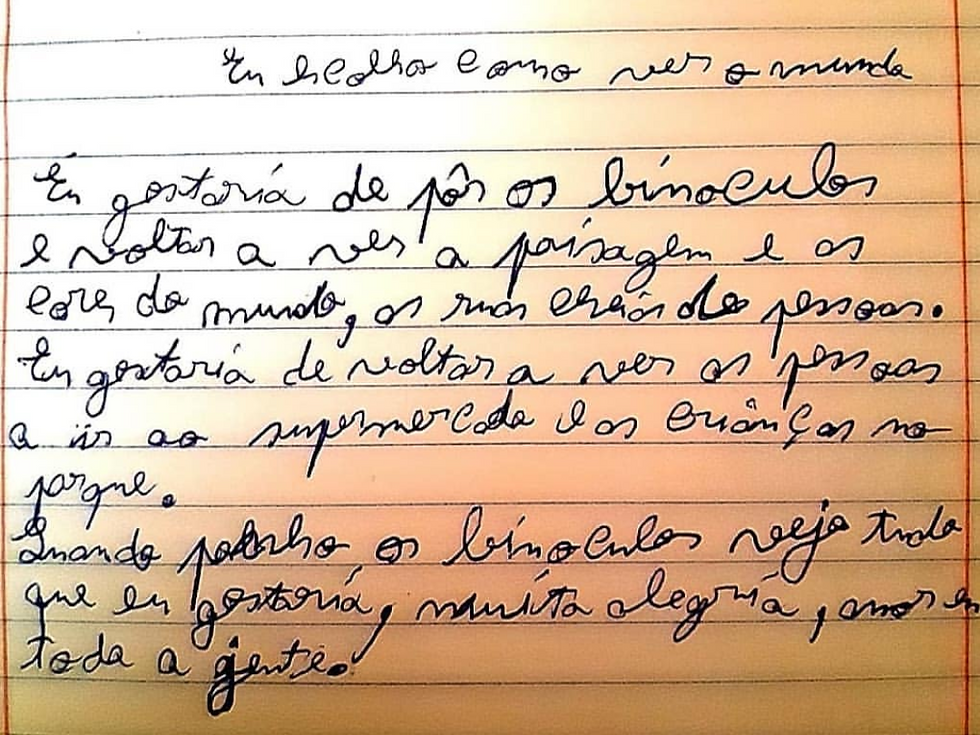 Eu escolho como ver o mundo
Eu gostaria de pôr os binoculos
e voltar a ver a paisagem e as
cores do mundo, as ruas cheias de pessoas.
Eu gostaria de voltar a ver as pessoas
a ir ao supermercado e as crianças no
parque.
Quando ponho os binoculos vejo tudo
que eu gostaria, muita alegria, amor em
toda a gente.